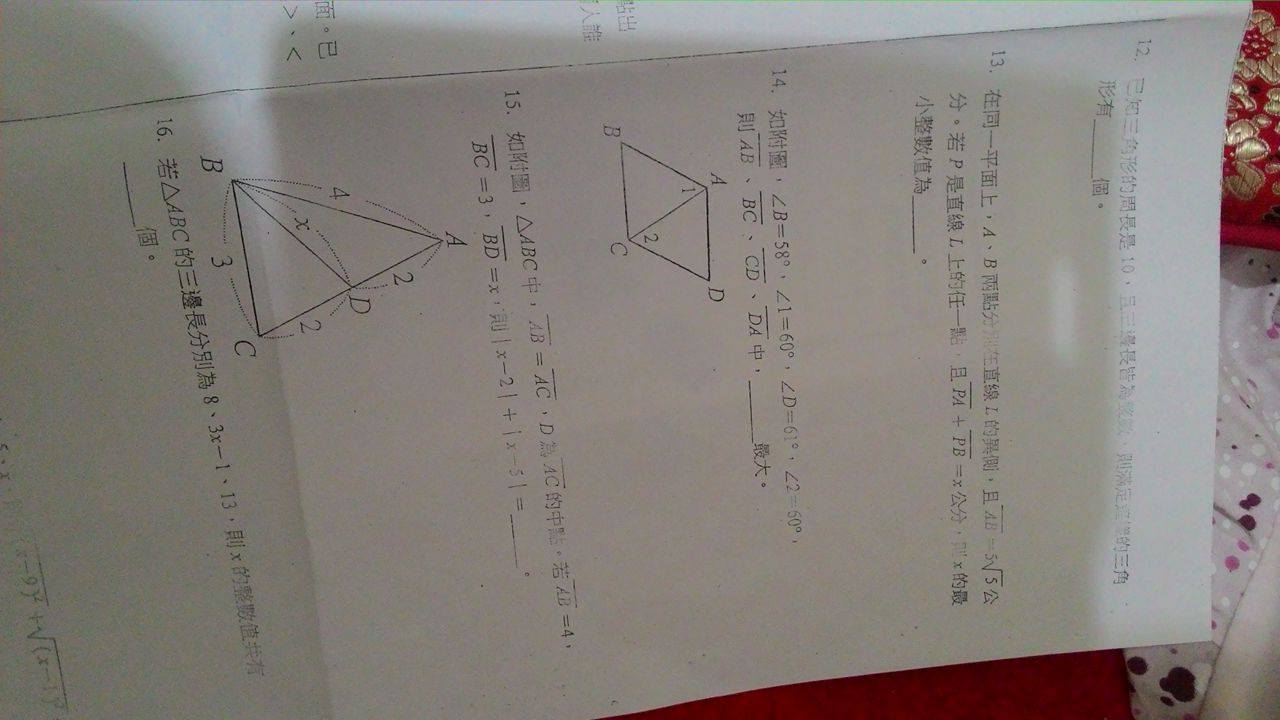 點出
人誰
面。已
>、<
12. 已知三角形的周長是10,且三邊長皆為整數,則滿足這樣的三角
形有______個。
13. 在同一平面上,A、B兩點分別在直線L的異側,且AB=5√5公
分。若P是直線L上的任一點,且PA+PB=x公分,則x的最
小整數值為______。
14. 如附圖,∠B=58°,∠1=60°,∠D=61°,∠2=60°,
則AB、BC、CD、DA中,______最大。
A
D
1
2
B
C
15. 如附圖,△ABC中,AB=AC,D為AC的中點。若AB=4,
BC=3,BD=x,則|x-2|+|x-5|=______。
A
4
2
x
D
2
B
3
C
16. 若△ABC的三邊長分別為8、3x-1、13,則x的整數值共有
______個。